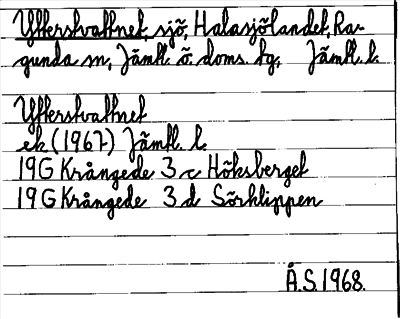 Ytterstvattnet, sjö, Halasjölandet, Ra-
gunda sn, Jämtl. ö. doms. hg, Jämtl. l.
Ytterstvattnet
ek (1967) Jämtl. l.
19G Krångede 3 c Höksberget
19G Krångede 3 d Sörklippen
Å.S. 1968.